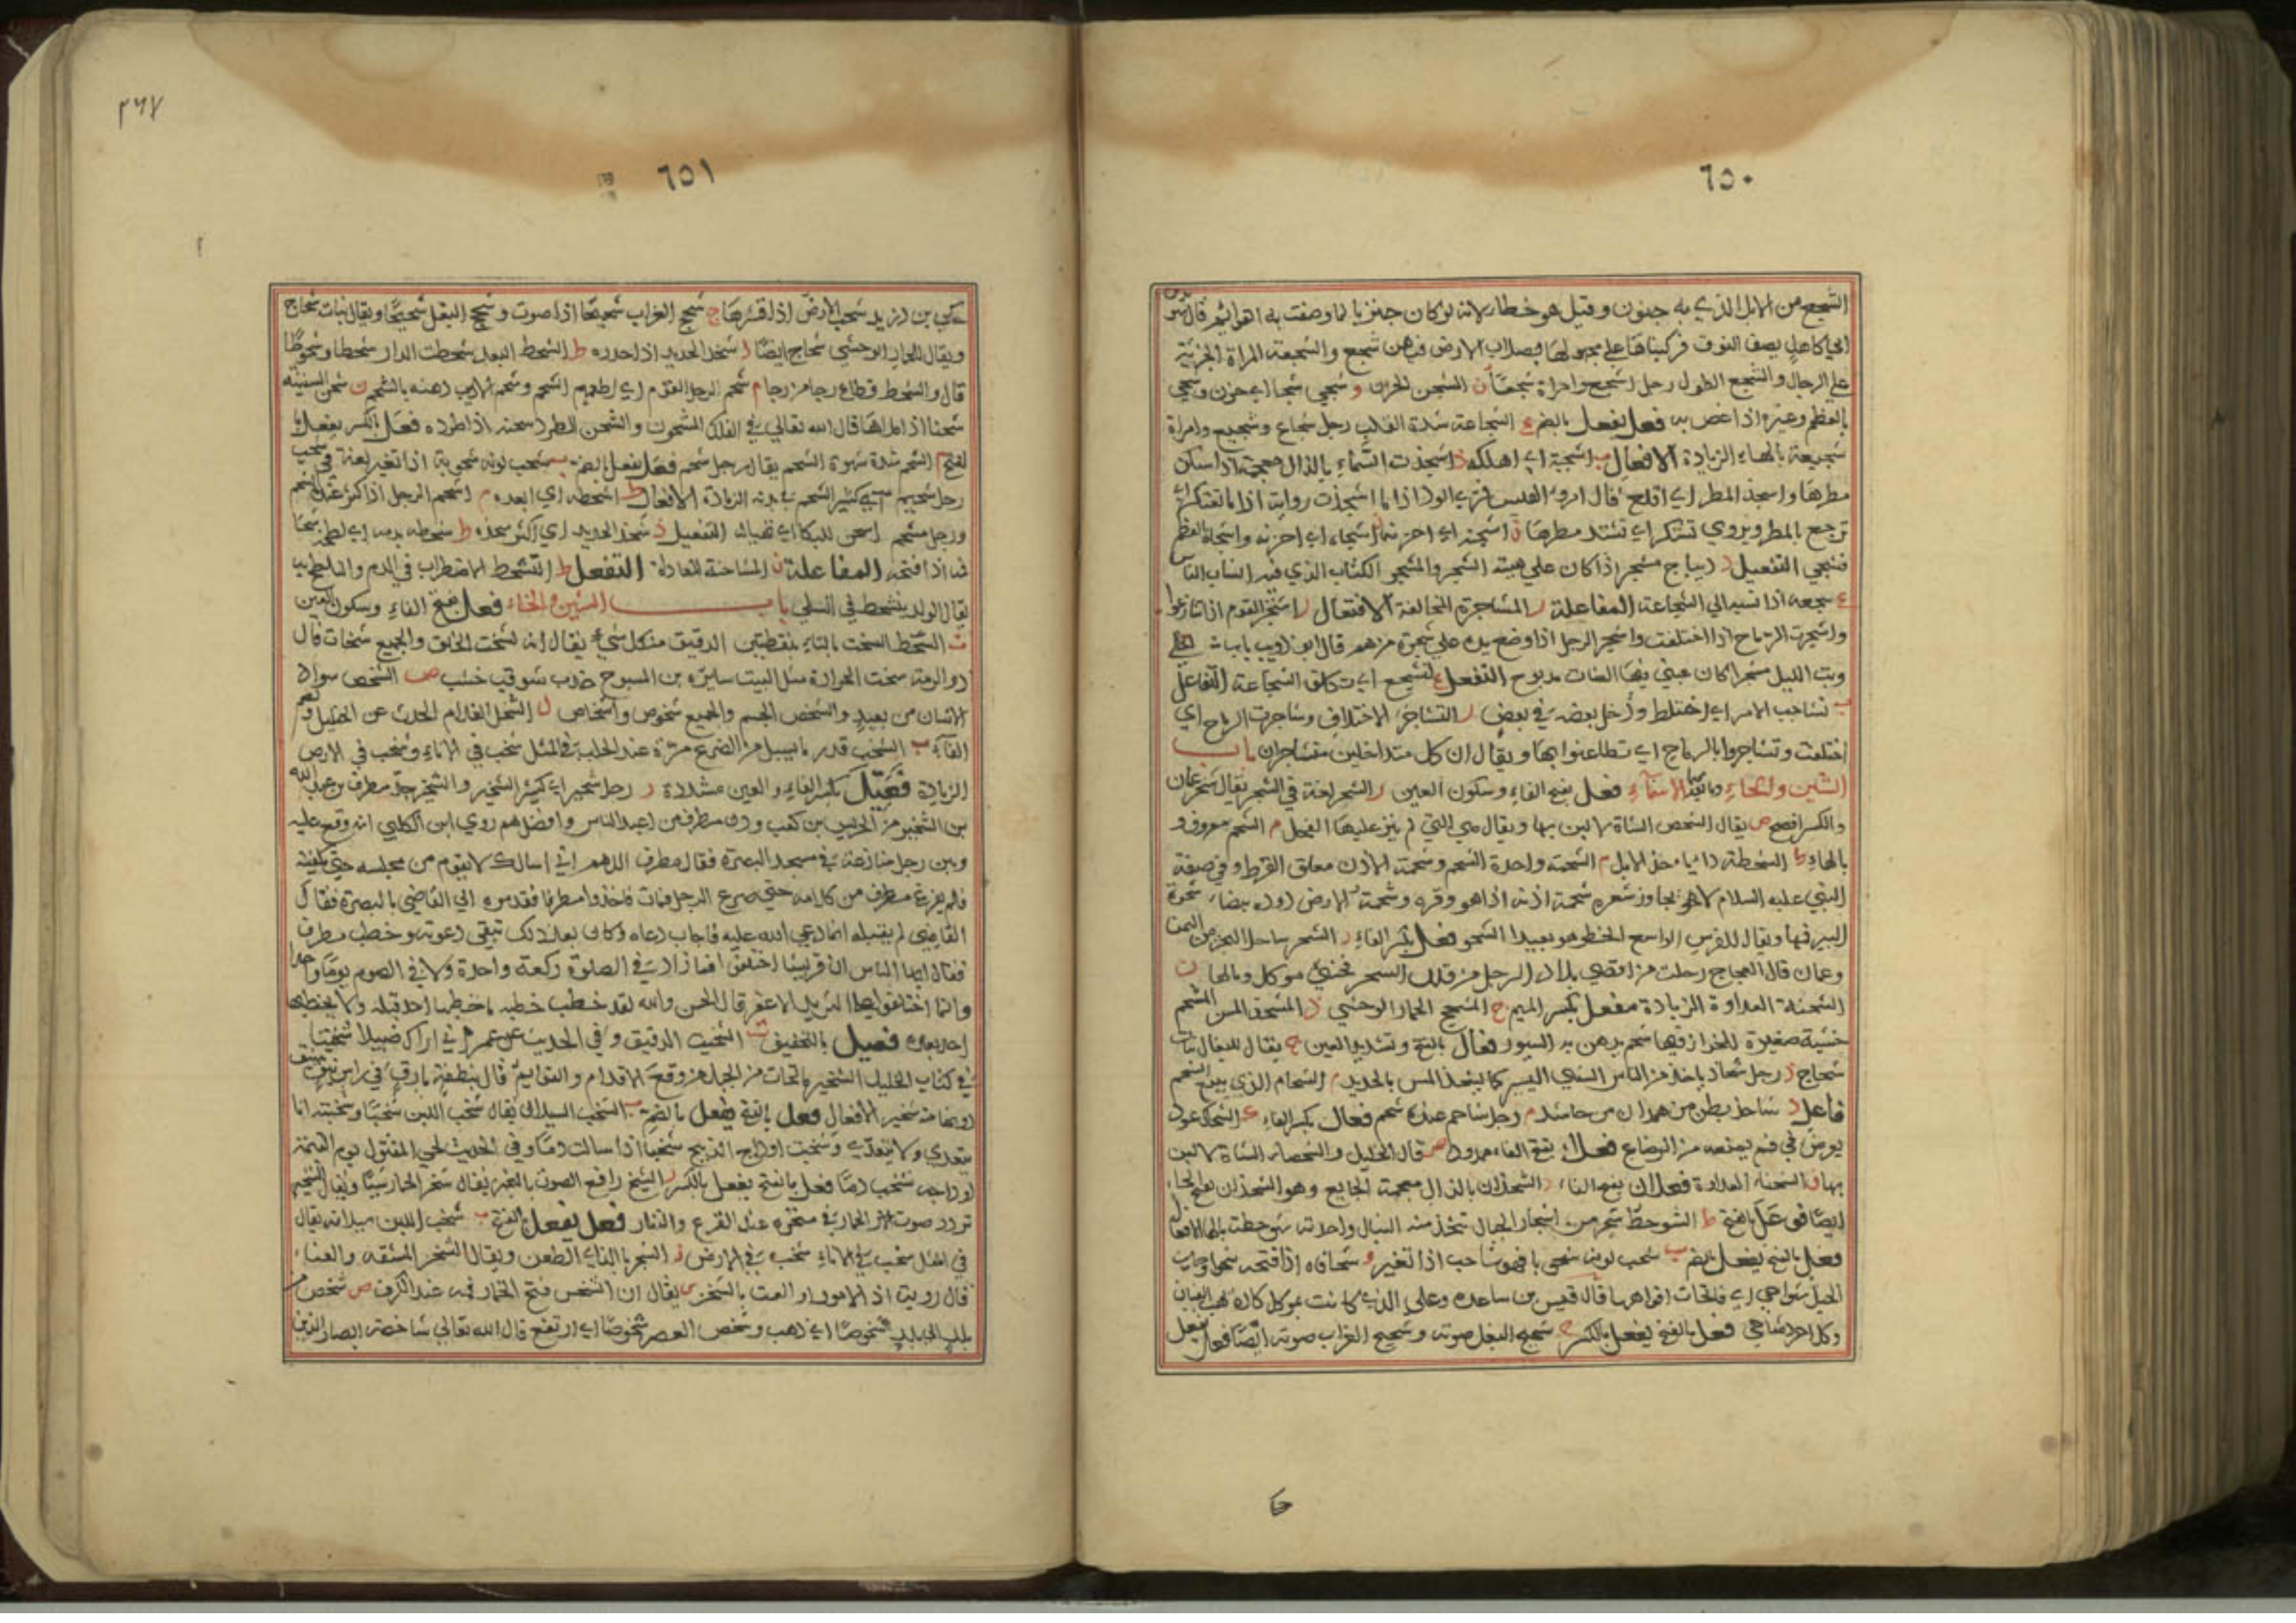 ٦٥٠
الشجع من الابل الذي به جنون وقيل هو خطأ لانه لو كان جنونا لما وصفت به القوائم قال
يصف النوق فركبناها على مجهولها بصلاب الارض فيهن شجع والشجعة المراة الجريئة
على الرجال والشجع الطول رجل اشجع وامراة شجعا ن الشجن الحزن و شجي شجا اي حزن وشجي
بالعظم وغيره اذا غص به فعل يفعل بالضم ع الشجاعة شدة القلب رجل شجاع وشجيع وامراة
شجيعة بالهاء الزيادة الافعال ب اشجبه اي اهلكه ذ اشجذت السماء بالذال معجمة اذا سكن
مطرها واسجذ المطر اي اقلع قال امرؤ القيس فتري الود اذا ما اشجذت
ترجع بالمطر ويروي تشتكر اي تشتد مطرها ن اشجنه اي احزنه و اشجاه اي احزنه واشجاه بالعظم
فشجي التفعيل ر ديباج مشجر اذا كان على هيئة الشجر والمشجر الكتاب الذي فيه
ع شجعه اذا نسبه الي الشجاعة المفاعلة ر المشاجرة المخالفة الافتعال ر اشتجر القوم اذا تنازعوا
واشتجرت الرماح اذا اختلفت واشتجر الرجل اذا وضع يده على شجره من هم قال ابو ذويب
وبت الليل مشتجرا كان عيني فيها الصاب مذبوح التفعل ع تشجع اي تكلف الشجاعة التفاعل
ب تشاجب الامر اي اختلط ودخل بعضه في بعض ر التشاجر الاختلاف وتشاجرت الرماح اي
اختلفت وتشاجروا بالرماح اي تطاعنوا بها ويقال ان كل متداخلين متشاجران باب
الشين والحاء وما بعدهما الاسماء فعل بفتح الفاء وسكون العين ر الشحر لغة في الشحر يقال شحر عمان
والكسر افصح ص يقال الشحص الشاة لا لبن بها ويقال هي التي لم ينز عليها الفحل م الشحم معروف و
بالهاء ط الشحطة داء ياخذ الابل م الشحمة واحدة الشحم وشحمة الاذن معلق القرط وفي صفة
النبي عليه السلام لا يجاوز شعره شحمة اذنه اذا هو وفره وشحمة الارض دودة بيضاء
البير فيها ويقال للفرس الواسع الخطو هو بعيد الشحو فعل بكسر الفاء ر الشحر ساحل البحر من اليمن
وعمان قال العجاج رحلت من اقصي بلاد الرحل من قلل الشحر فجنبي موكل وبالهاء ن
الشحنة العداوة الزيادة مفعل بكسر الميم ج المشحج الحمار الوحشي ذ المشحذ المسن
خشبة صغيرة للخراز فيها شحم يدهن به السيور فعال بالفتح وتشديد العين ج يقال للبغال بنات
شحاج ذ رجل شحاذ ياخذ من الناس الشيء اليسير كما يشحذ المسن بالحديد م الشحام الذي يبيع الشحم
فاعل ذ شاحذ بطن من همدان من حاشد م رجل شاحم عنده شحم فعال بكسر الفاء ك الشحاك عود
يعرض في فم يمنعه من الرضاع فعلاء بفتح الفاء ممدود ص قال الخليل والشحصاء الشاة لا لبن
بها ن الشحناء العداوة فعلان بفتح الفاء ذ الشحذان بالذال معجمة الجايع وهو الشحذان بفتح الحاء
ايضا فوعل بالفتح ط الشوحط شجر من اشجار الجبال تتخذ منه النبال واحدته شوحطة بالهاء الافعال
فعل بالفتح يفعل بالضم ب شحب لونه شحوبا فهو شاحب اذا تغير و شحا فاه اذا فتحه شحوا وجاءت
الخيل شواحي اي فاتحات افواهها قال قس بن ساعدة وعلى الذي كانت بموكل
وكل اجرد شاحي فعل بالفتح يفعل بالكسر ج شحيج البغل صوته وشحيج الغراب صوته ايضا فعل يفعل
٣٦٧
٦٥١
ب بن دريد شحب الارض اذا قشرها ج شحج الغراب شحيجا اذا صوت وشحج البغل شحيجا ويقال بنات شحاج
ويقال للحمار الوحشي شحاج ايضا ذ شحذ الحديد اذا حدده ط الشحط البعد شحطت الدار شحطا وشحوطا
قال والشحط قطاع رجا من رجا م شحم الرجل القوم اي اطعمهم الشحم وشحم الاديم دهنه بالشحم ن شحن السفينة
شحنا اذا ملاها قال الله تعالي في الفلك المشحون والشحن الطرد شحنه اذا طرده فعل بالكسر يفعل
بالفتح م الشحم شدة شهوة الشحم يقال رجل شحم فعل يفعل بالضم ب شحب لونه شحوبة اذا تغير لغة في شحب
رجل شحيم اي كثير الشحم في بدنه الزيادة الافعال ط اشحطه اي ابعده م اشحم الرجل اذا كثر عنده الشحم
ورجل مشحم اشحن للبكا اي تهيا له التفعيل ذ شحذ الحديد اي اكثر شحذه ط شحطه بدمه اي لطخه
فمه اذا فتحه المفاعلة ن المشاحنة المعاداة التفعل ط التشحط الاضطراب في الدم والتلطخ به
يقال الولد يتشحط في السلي باب الشين والخاء فعل بفتح الفاء وسكون العين
ت الشخت بالتاء بنقطتين الدقيق من كل شيء يقال انه لشخت الخلق والجميع شخات قال
ذو الرمة شخت الجزارة مثل البيت سايره من المسوح خدب شوقب خشب ص الشخص سواد
الانسان من بعيد والشخص الجسم والجميع شخوص واشخاص ل الشخل الغلام الحدث عن الخليل وبضم
الفاء ب الشخب قدر ما يسيل من الضرع مرة عند الحلب في المثل شخب في الاناء وشخب في الارض
الزيادة فعيل بكسر الفاء والعين مشددة ر رجل شخير اي كثير الشخير والشخير جد مطرف بن عبد الله
بن الشخير من الحريش بن كعب وكان مطرف من اعبد الناس وافضلهم روي ابن الكلبي انه وقع عليه
وبين رجل منازعة في مسجد البصرة فقال مطرف اللهم اني اسالك لا يقوم من مجلسه حتي تكفينيه
فلم يفرغ مطرف من كلامه حتي صرع الرجل فمات فاخذوا مطرفا فقدموه الي القاضي بالبصرة فقال
القاضي لم يقتله انما دعي الله عليه فاجاب دعاه وكان بعد ذلك تتقي دعوته وخطب مطرف
فقال ايها الناس ان قريشا اختلفت افما زادت في الصلوة ركعة واحدة ولا في الصوم يوما واحدا
وانما اختلفوا لهذا الثريد الاعفر قال الحسن والله لقد خطب خطبة ما خطبها احد قبله ولا يخطبها
احد بعده فعيل بالتخفيف ت الشخيت الدقيق وفي الحديث عن عمر اني اراك ضئيلا شخيتا
في كتاب الخليل الشخير ما تحات من الجبل من وقع الاقدام والقوايم قال بنطفة بارق في راس نيق
دونها منه شخير الافعال فعل بالفتح يفعل بالضم ب الشخب السيلان يقال شخب اللبن شخبا وشخبته انا
يتعدي ولا يتعدي وشخبت اوداج الذبيح شخبا اذا سالت دما وفي الحديث يحي المقتول يوم القيمة
اوداجه تشخب دما فعل بالفتح يفعل بالكسر ر الشخر رافع الصوت بالنخر يقال شخر الحمار شخيرا ويقال الشخير
تردد صوت الحمار في منخره عند الفزع والنفار فعل يفعل بالفتح ب شخب اللبن سيلانه يقال
في المثل شخب في الاناء شخب في الارض ز الشخز بالزاي الطعن ويقال الشخز المشقة والعناء
قال روبة اذا الامور اولعت بالشخز س يقال ان الشخس فتح الحمار فمه عند الكرف ص شخص من
بلد الي بلد شخوصا اي ذهب وشخص البصر شخوصا اي ارتفع قال الله تعالي شاخصة ابصار الذين